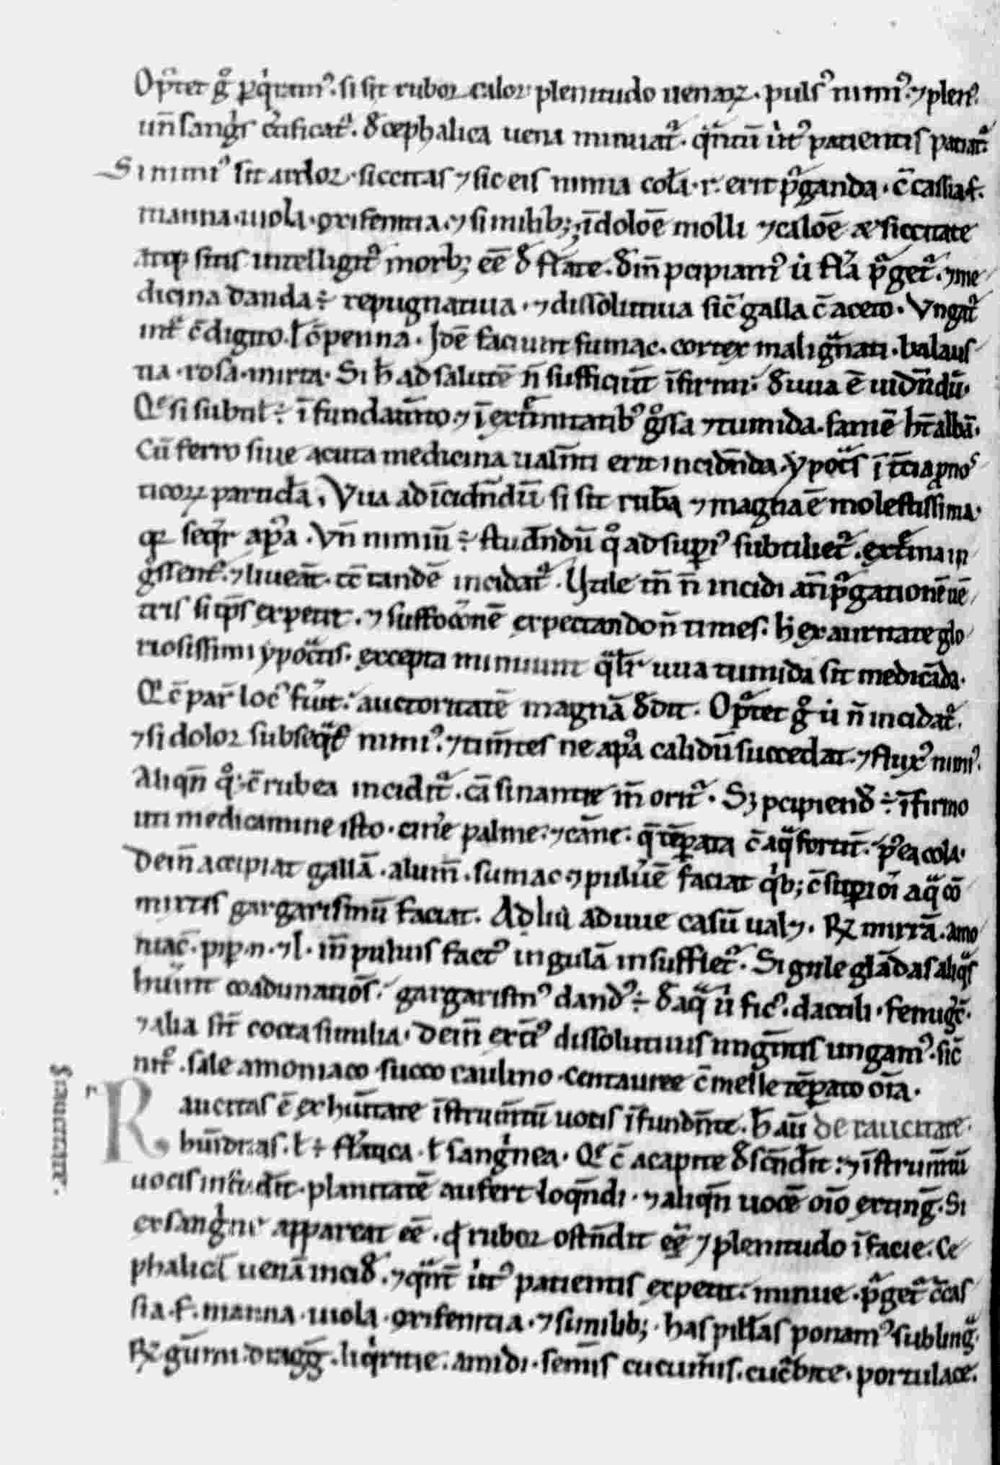 Op̄tet g° ꝑq̇ramꝰ. si sit rubor calor plenitudo uenaꝝ. pulsꝰ nimiꝰ. ⁊ plenꝰ.
un̄ sang̓s c̄tificatᷣ. d̄ cephalica uena minuatᷣ. q̄ntū u̓tꝰ patientis patiatᷣ
Si nimiꝰ sit ardor. siccitas ⁊ sic eis nimia col̄a. r. erit p̄ganda. c̄ cassia f.
manna. uiola. oxifenicia. ⁊ similibꝫ; ī dolorē molli ⁊ calorē siccitate
atqꝫ sitis intelligitᷣ morbꝫ eē d̄ flate. d̄in̄ ꝑcipiamꝰ u̓ fl̄a p̄getᷣ. ⁊ me
dicina danda ÷ repugnatiua. ⁊ dissolutiua sic̄ galla c̄ aceto. Vngatᷣ
int̓ c̄ digito. l̄ c̄ penna. Idē faciunt sumac. cortex mali g̓nati. balaus
tia. rosa. mirta. Si h̄ ad salutē n̄ sufficiūt īfirmi. d̄ uua ē uidn̄dū.
Q̄ si subtil̄ ÷ ī fundam̄to. ⁊ ī ext̓mitatibꝰ g̓ssa ⁊ tumida. saniē hn̄s albā.
Cū ferro siue acuta medicina ualēti erit incidn̄da. ypoc̄s ī t̄cia ꝓnos
ticoꝝ particl̄a. Vua ad īcidn̄dū si sit rub̄a ⁊ magna ē molestissima.
qꝫ seq̇r ap̄a. Vn̄ nimiū ÷ studn̄dū q° ad supi̓ꝰ subtilietᷣ. ext̓ma in
g̓ssent̓. ⁊ liueāt. t̄c tandē incidatᷣ. Vtile tn̄ n̄ incidi an̄ p̄gationē uē
tris si tp̄s expetit. ⁊ suffocōnē expectando n̄ times. h̄ ex auctitate glo
riosissimi ypoc̄tis. excepta minuunt q̄lr uua tumida sit medicāda.
Q̄ c̄ par̄ locꝰ fūit. auctoritatē magnā d̄dit. Op̄tet g° u̓ n̄ incidatᷣ.
⁊ si dolor subseq̄t̓ nimiꝰ. ⁊ tim̄tes ne ap̄a calidū succedat. ⁊ fluxꝰ nimiꝰ.
Aliqn̄ q°. c̄ rubea inciditᷣ. cā sinantie in̄ oritᷣ. Sꝫ ꝑcipiend̄ ÷ īfirmo
uti medicamine isto. cin̓e palme. ⁊ cāne. q̄ tēpata c̄ aq̄ fortit̄. pꝰea cola.
Dein̄ accipiat gallā. alum̄. sumac ⁊ puluē faciat q̓bꝫ; c̄ supi̓oi aq̄ cō
mixtis gargarismū faciat. Ad hūc ad uue casū ualꝫ. ℞ mirrā. amo
niac̄. piꝑ. n. ⁊ l. in̄ puluis factꝰ in gulā insuffletᷣ. Si gule glādas aliq̄s
hūint coadunatiōs. gargarismꝰ dandꝰ ÷ d̄ aq̄ u̓ ficꝰ. dactili. fenug̓c̄.
⁊ alia sīt cocta similia. Dein̄ ext̓ꝰ dissolutiuis ung̓ntis ungamꝰ. sic̄
nit̓. sale amoniaco. succo caulino. centauree c̄ melle tēꝑato oīa.
Raucitas ē ex hūitate īstrum̄tū uocis īfundn̄te. h̄ aū de raucitate.
hūiditas. l̄ ÷ fl̄atica. l̄ sang̓nea. Q̄ c̄ a capite d̄scn̄dit. ⁊ īstrum̄tū
uocis infu̓dit. planitatē aufert loqn̄di. ⁊ aliqn̄ uocē oīo exting̓. Si
ex sang̓ne appareat eē. qd̄ rubor ostn̄dit eē ⁊ plenitudo ī facie. Ce
phalicā uenā incid̄. ⁊ q̄nt̄ u̓tꝰ patientis expetit. minue. p̄getᷣ c̄ cas
sia f. manna. uiola. oxifenicia. ⁊ similibꝫ; has pill̄as ponamꝰ sub ling̓.
℞ gūmi. dragg̓. liq̓ritie. amidi. sem̄is cucum̄is. cuc̄bite. portulace.